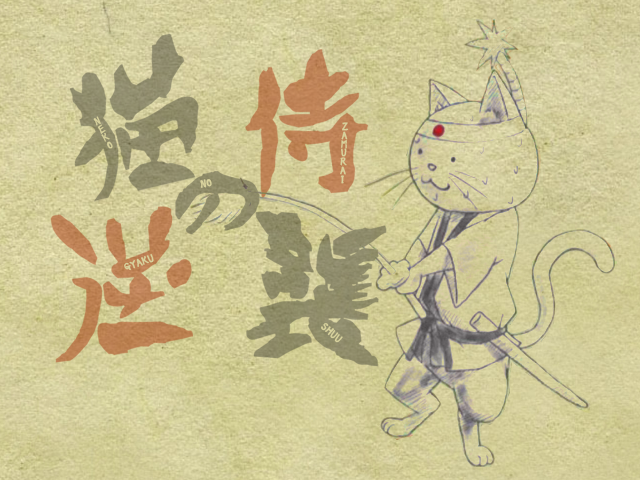 猫侍
の
逆襲
NEKO
ZAMURAI
NO
GYAKU
SHUU